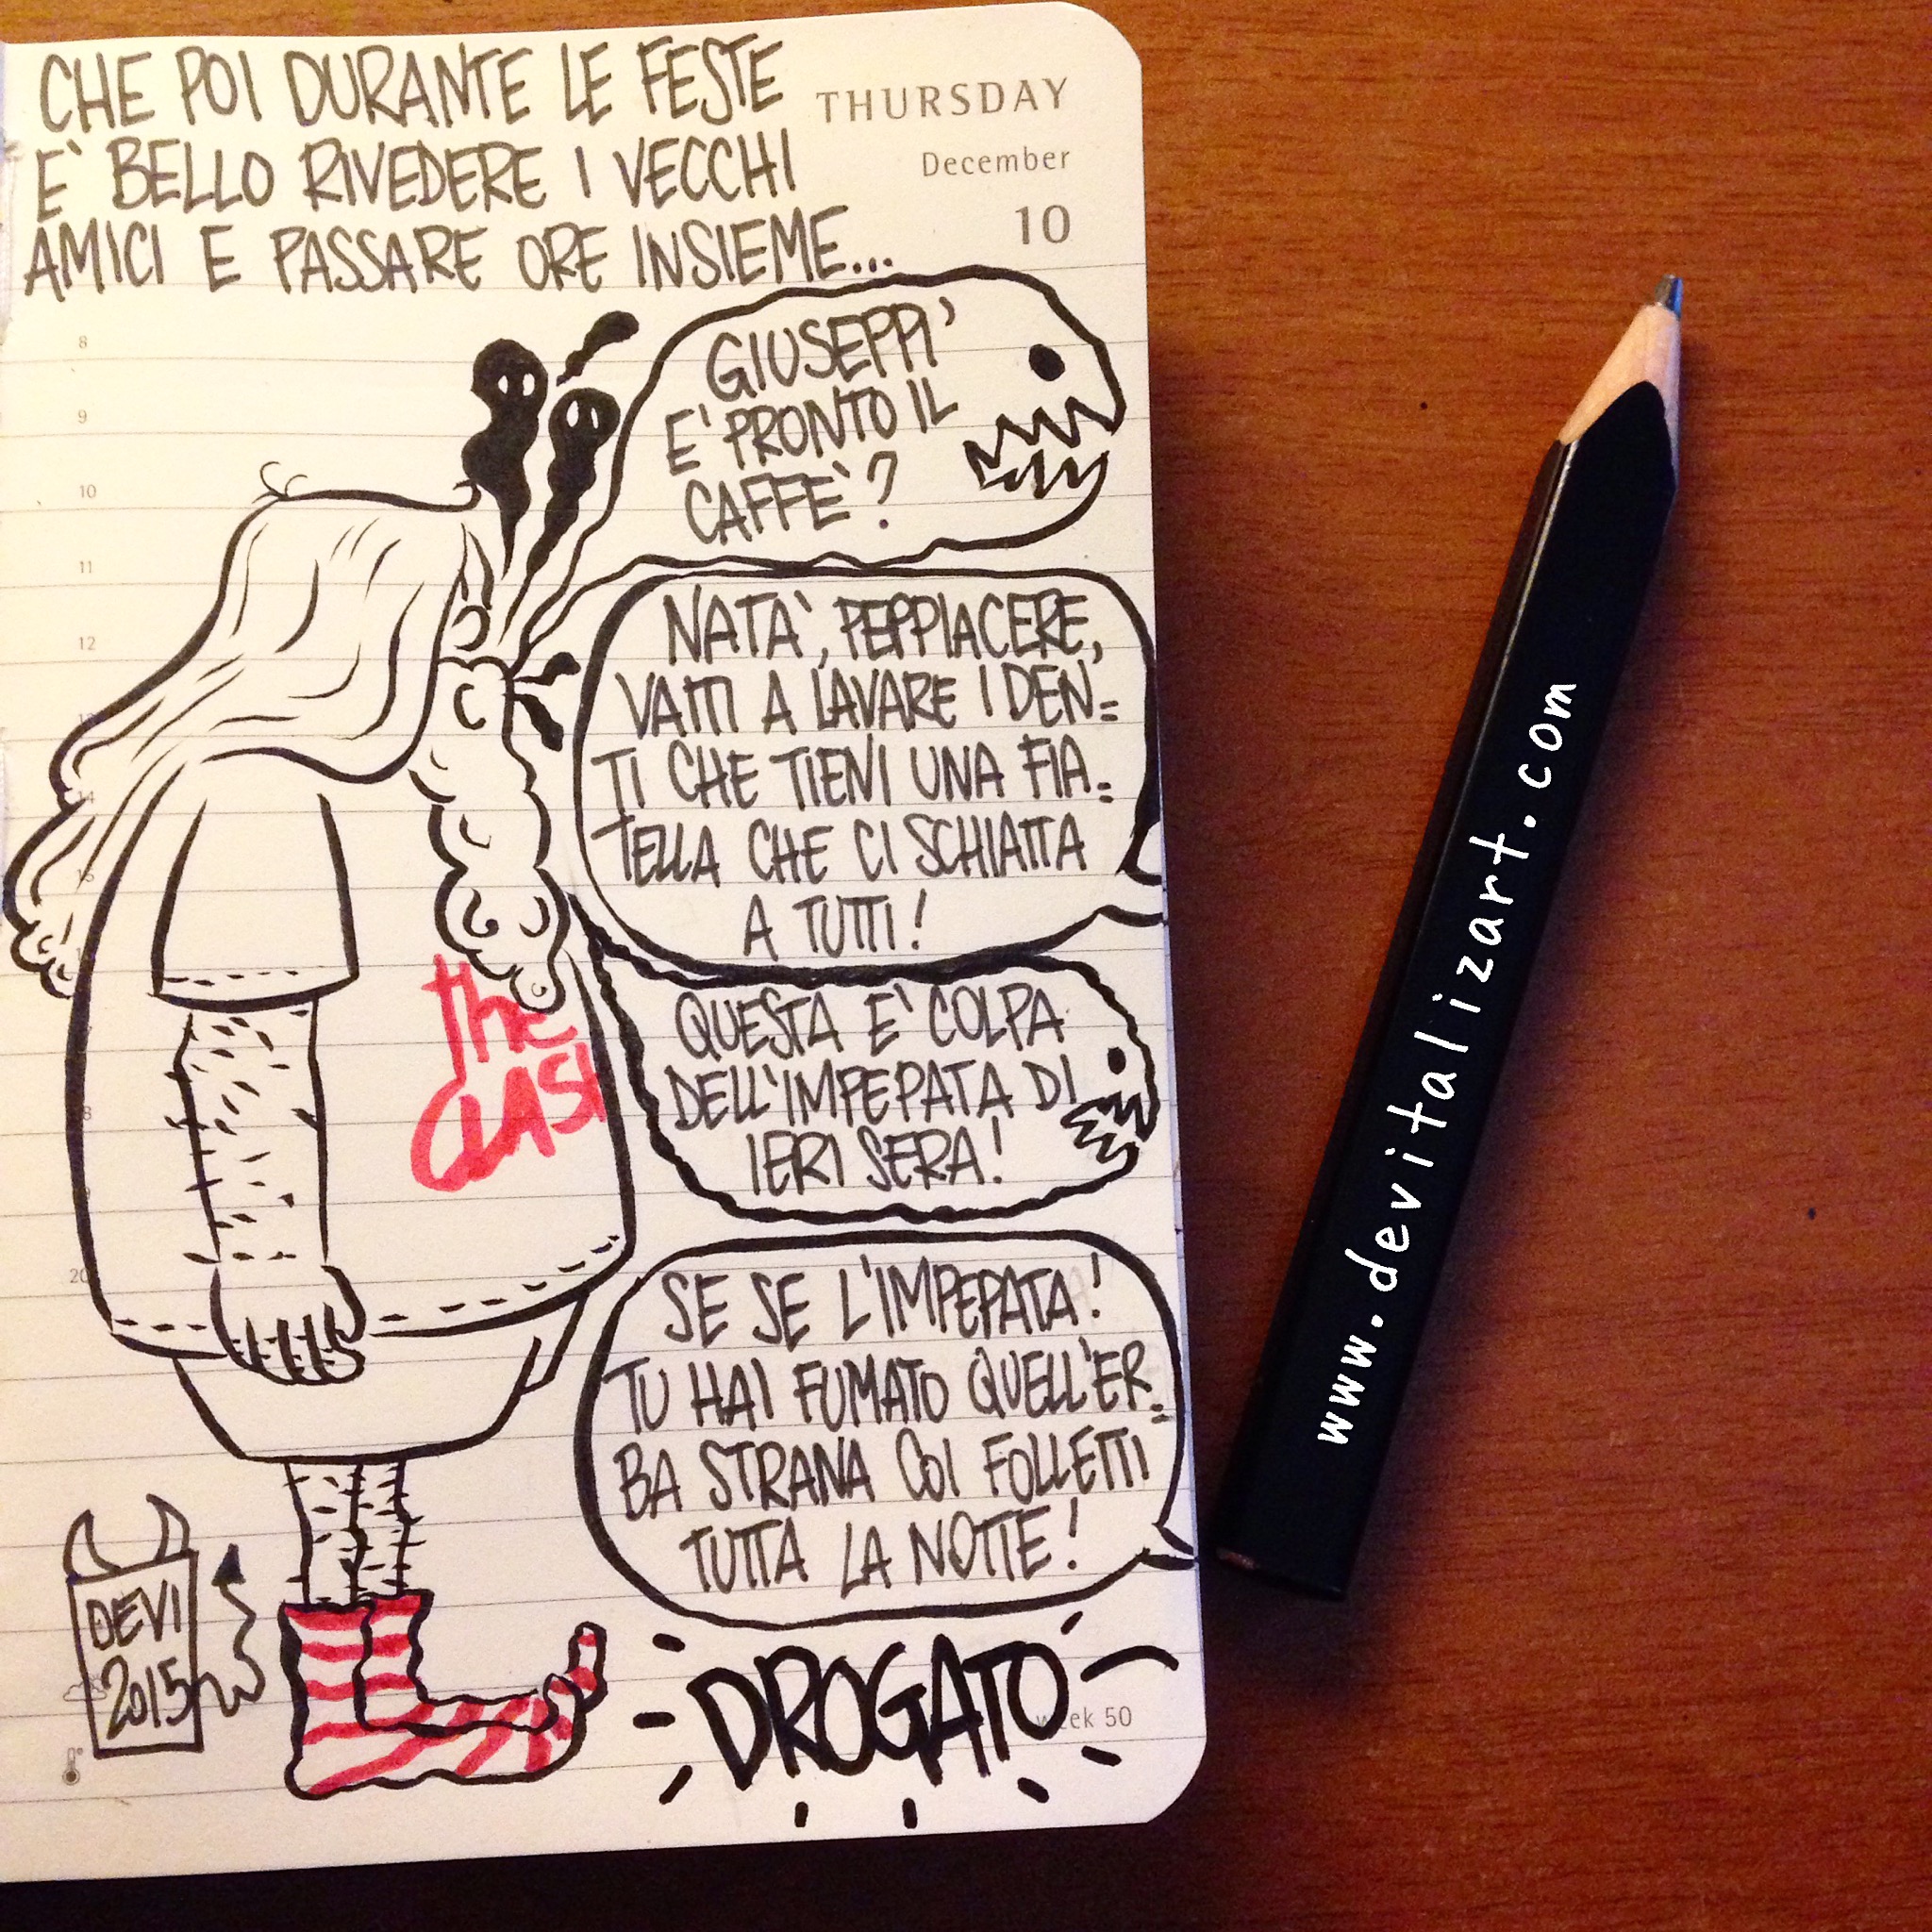 CHE POI DURANTE LE FESTE
E' BELLO RIVEDERE I VECCHI
AMICI E PASSARE ORE INSIEME...
THURSDAY
December
10
GIUSEPPI'
E' PRONTO IL
CAFFE'?
NATA', PEPPIACERE,
VATTI A LAVARE I DEN=
TI CHE TIENI UNA FIA=
TELLA CHE CI SCHIATTA
A TUTTI!
QUESTA E' COLPA
DELL'IMPEPATA DI
IERI SERA!
SE SE L'IMPEPATA!
TU HAI FUMATO QUELL'ER=
BA STRANA COI FOLLETTI
TUTTA LA NOTTE!
DROGATO
week 50
the
CLASH
DEVI
2015
8
9
10
11
12
13
14
15
18
20
www.devitalizart.com